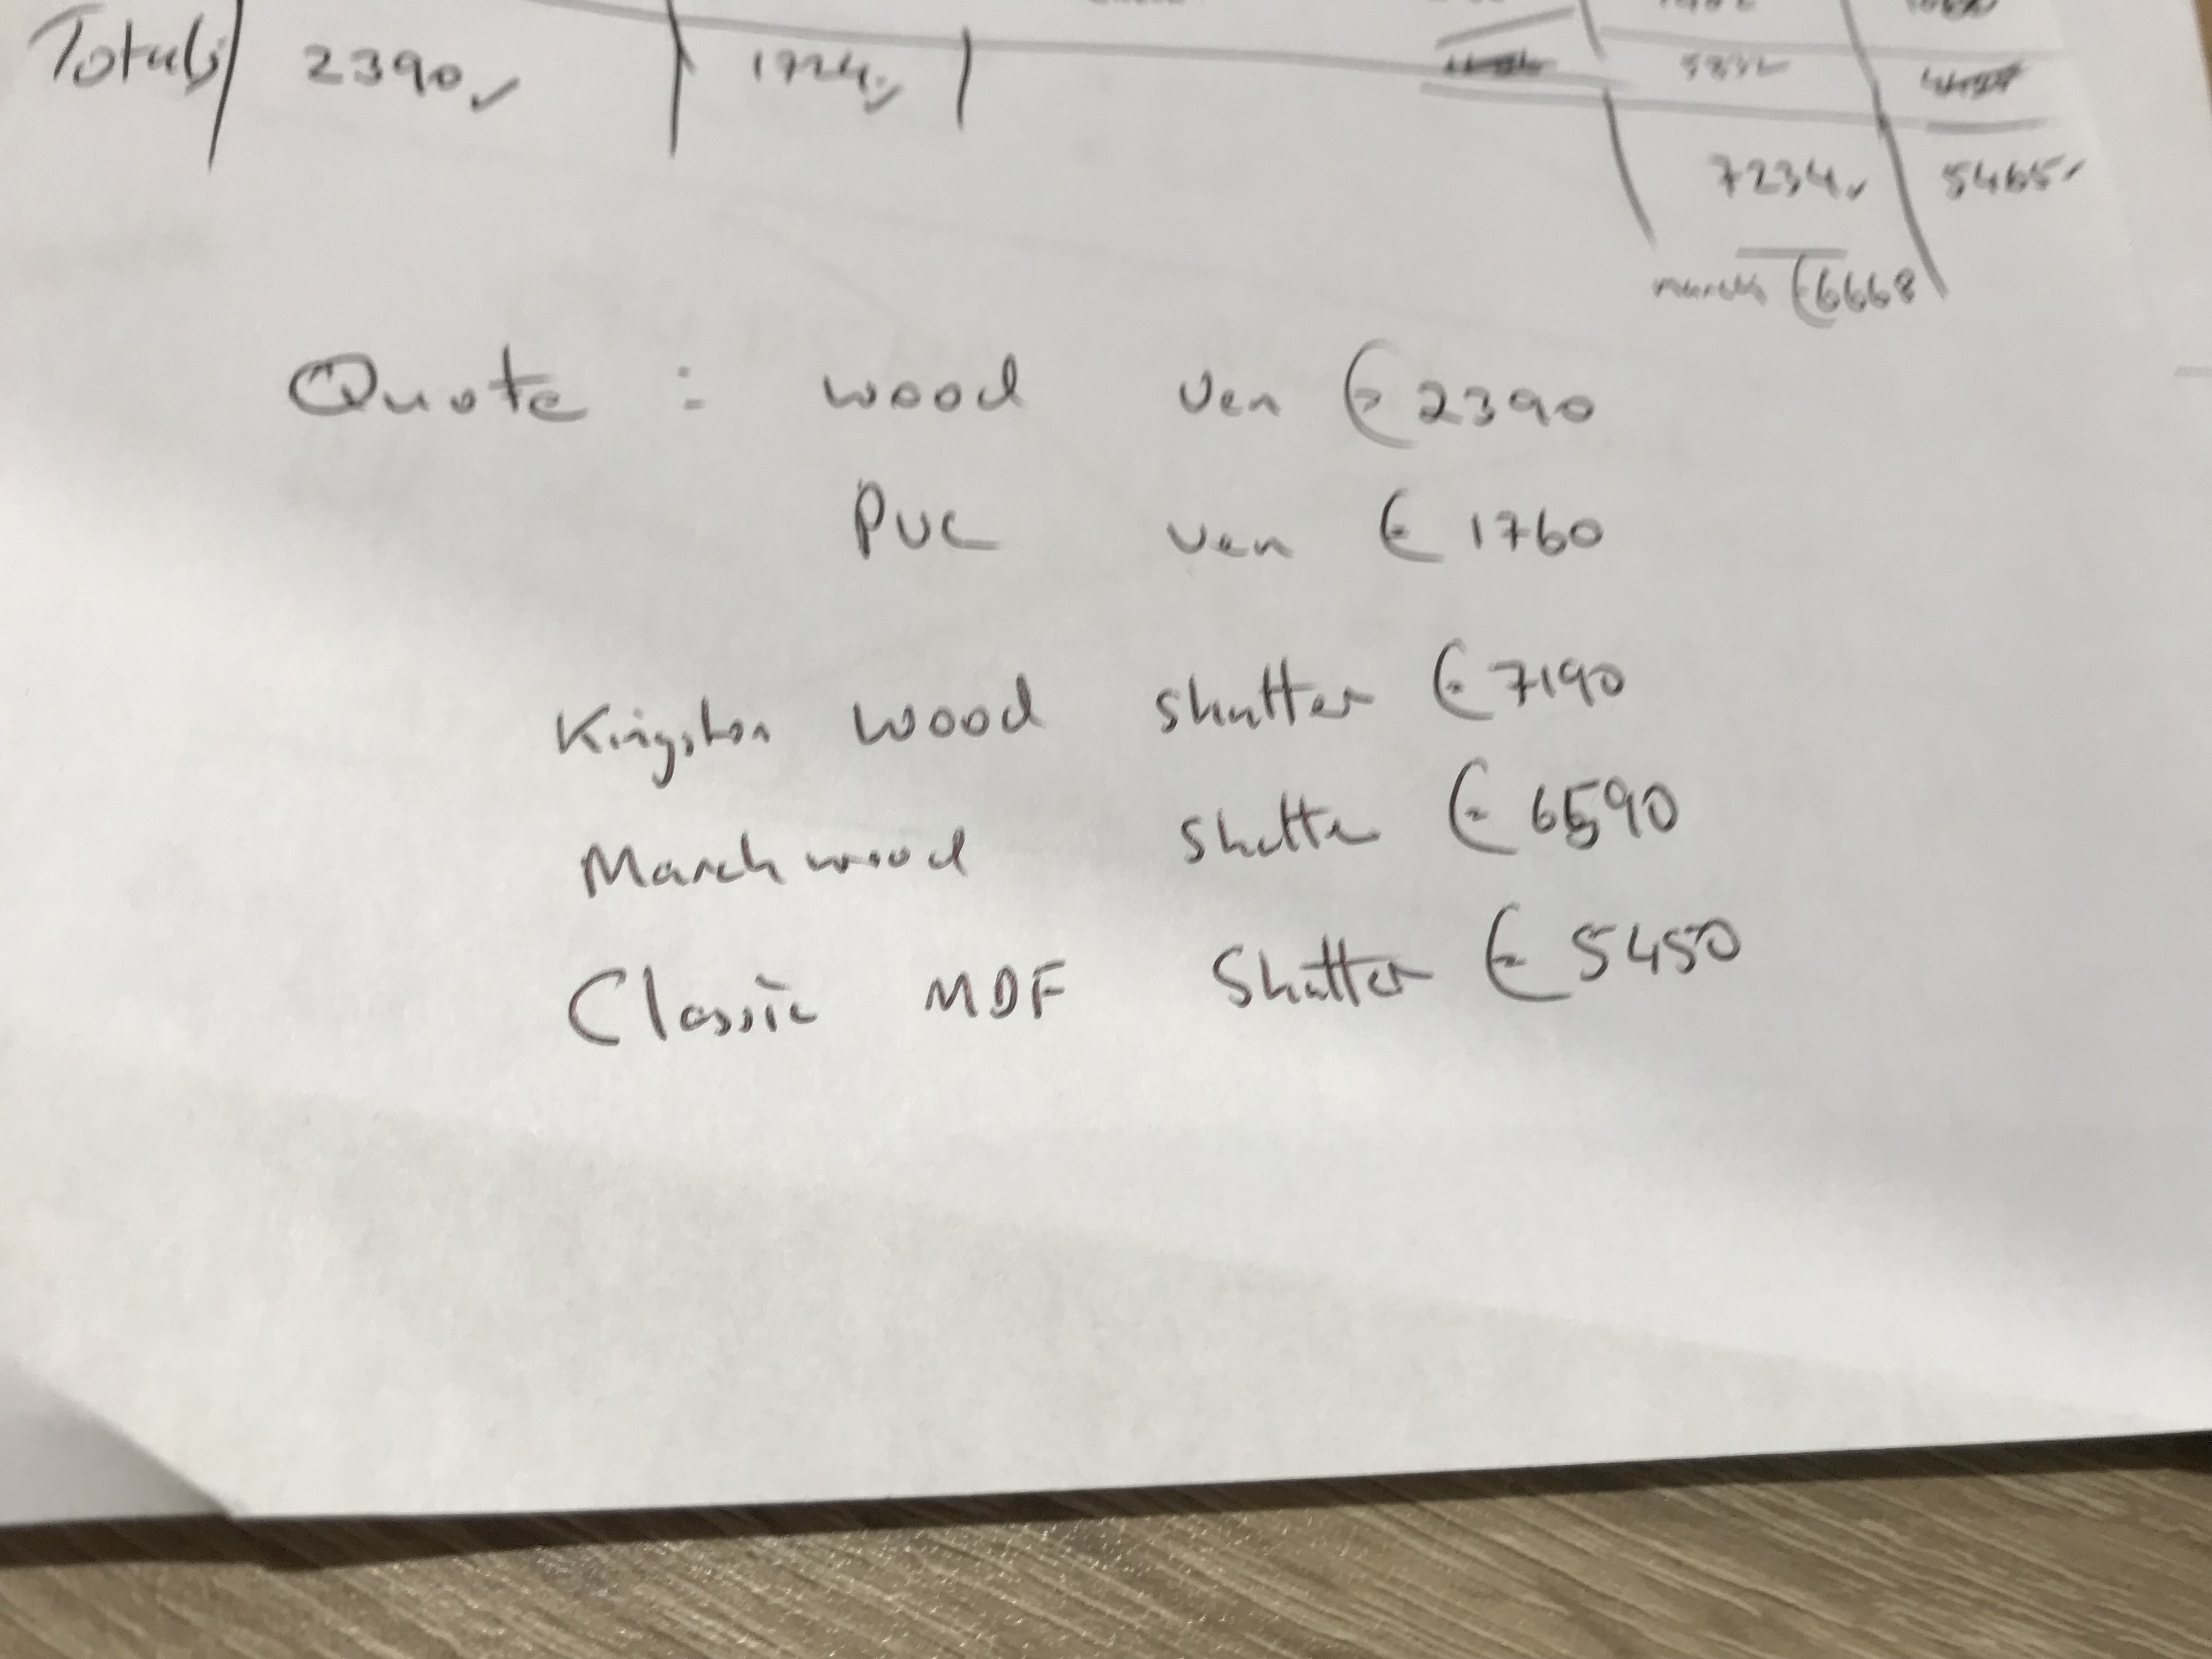 Totals 2390 1724
5832
7234 5465
€6668
Quote : wood ven €2390
PVC ven € 1760
Kingston wood shutter €7190
Marchwood Shutter €6590
Classic MDF Shutter €5450